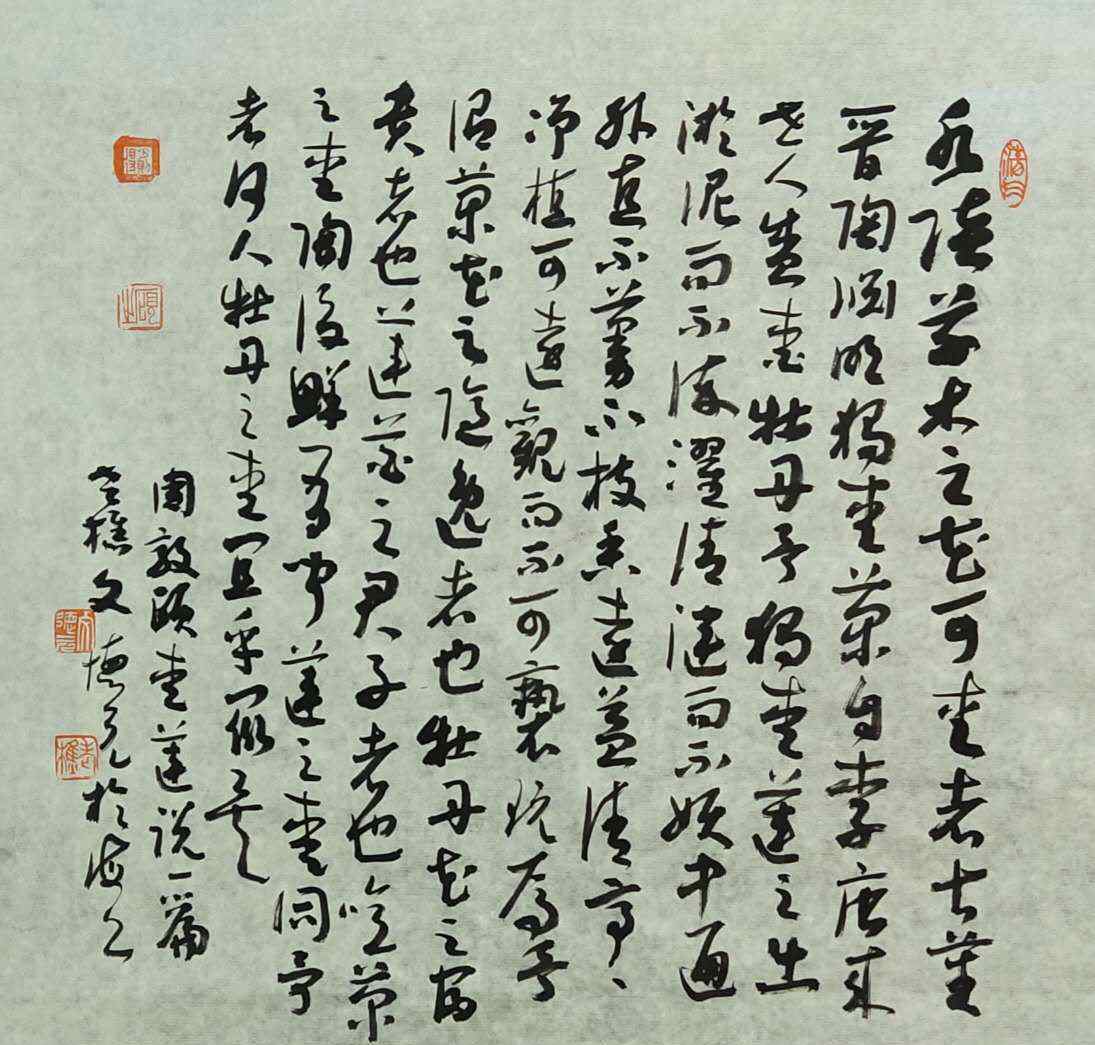 水陸草木之花可愛者甚蕃
晉陶淵明獨愛菊自李唐来
世人盛愛牡丹予獨愛蓮之出
淤泥而不染濯清漣而不妖中通
外直不蔓不枝香遠益清亭々
净植可遠觀而不可褻玩焉予
謂菊花之隱逸者也牡丹花之富
貴者也蓮花之君子者也噫菊
之愛陶後鮮有聞蓮之愛同予
者何人牡丹之愛宜乎眾矣
周敦頤愛蓮說一篇
老樵文德元於海上
老樵